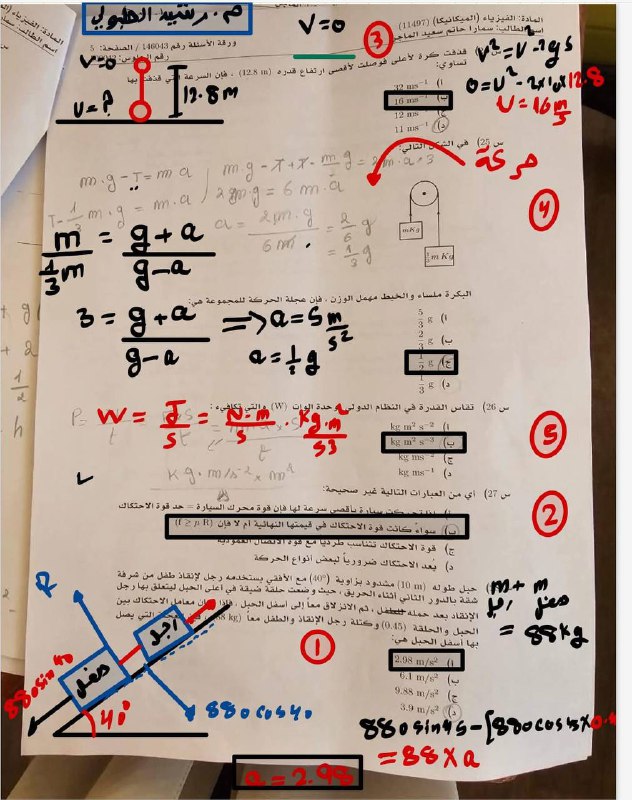 م. رشيد الطبولي
المادة: الفيزياء (الميكانيكا) (11497)
اسم الطالب: سمارا حاتم سعيد
ورقة الأسئلة رقم 146043 / الصفحة: 5
V=0
V=0
U=?
12.8m
3
قذفت كرة لأعلى فوصلت لأقصى ارتفاع قدره (12.8 m) ، فإن السرعة التي قذفت بها
تساوي:
أ) 32 ms⁻¹
ب) 16 ms⁻¹
ج) 12 ms⁻¹
د) 11 ms⁻¹
0=U²-2x10x12.8
U=16 m/s
س 25) في الشكل التالي:
حركة
4
m.g - T = m a
a = 2m.g / 6m = 2/6 g
= 1/3 g
m / 1/3 m = g+a / g-a
3 = g+a / g-a ⇒ a=5 m/s²
m Kg
1/3 m Kg
البكرة ملساء والخيط مهمل الوزن، فإن عجلة الحركة للمجموعة هي:
أ) 5/3 g
ب) 2/3 g
ج) 1/2 g
د) 1/3 g
س 26) تقاس القدرة في النظام الدولي بوحدة الوات (W) والتي تكافيء:
أ) kg m² s⁻²
ب) kg m² s⁻³
ج) kg ms⁻²
د) kg ms⁻¹
5
W = J/s = N.m/s . kg.m²/s3
Kg.m/s⁻² x m
س 27) أي من العبارات التالية غير صحيحة:
2
أ) إذا تحركت سيارة بأقصى سرعة لها فإن قوة محرك السيارة = حد قوة الاحتكاك
ب) سواء كانت قوة الاحتكاك في قيمتها النهائية أم لا فإن (f ≥ μ R)
ج) قوة الاحتكاك تتناسب طردياً مع قوة الاتصال العمودية
د) يعد الاحتكاك ضرورياً لبعض أنواع الحركة
حبل طوله (10 m) مشدود بزاوية (40°) مع الأفقي يستخدمه رجل لإنقاذ طفل من شرفة
شقة بالدور الثاني أثناء الحريق، حيث وضعت حلقة ضيقة في أعلى الحبل ليتعلق بها رجل
الإنقاذ بعد حمله للطفل، ثم الانزلاق معاً إلى أسفل الحبل، فإذا كان معامل الاحتكاك بين
الحبل والحلقة (0.45) وكتلة رجل الإنقاذ والطفل معاً (88 kg)
بها أسفل الحبل هي:
أ) 2.98 m/s²
ب) 6.1 m/s²
ج) 9.88 m/s²
د) 3.9 m/s²
1
m + m
طفل
= 88kg
R
رجل
طفل
880sin40
40°
880cos40
880sin45-[880cos45x0.
=88xa
a = 2.98